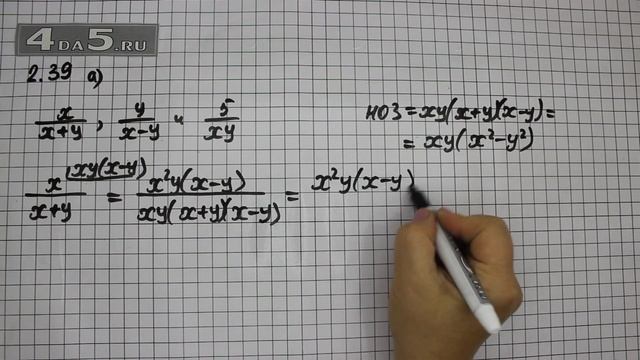 4DA5.RU
2.39 а)
x/(x+y), y/(x-y) и 5/(xy)
НОЗ = xy(x+y)(x-y) =
= xy(x²-y²)
x/(x+y) ^xy(x-y) = x²y(x-y)/(xy(x+y)(x-y)) = x²y(x-y)